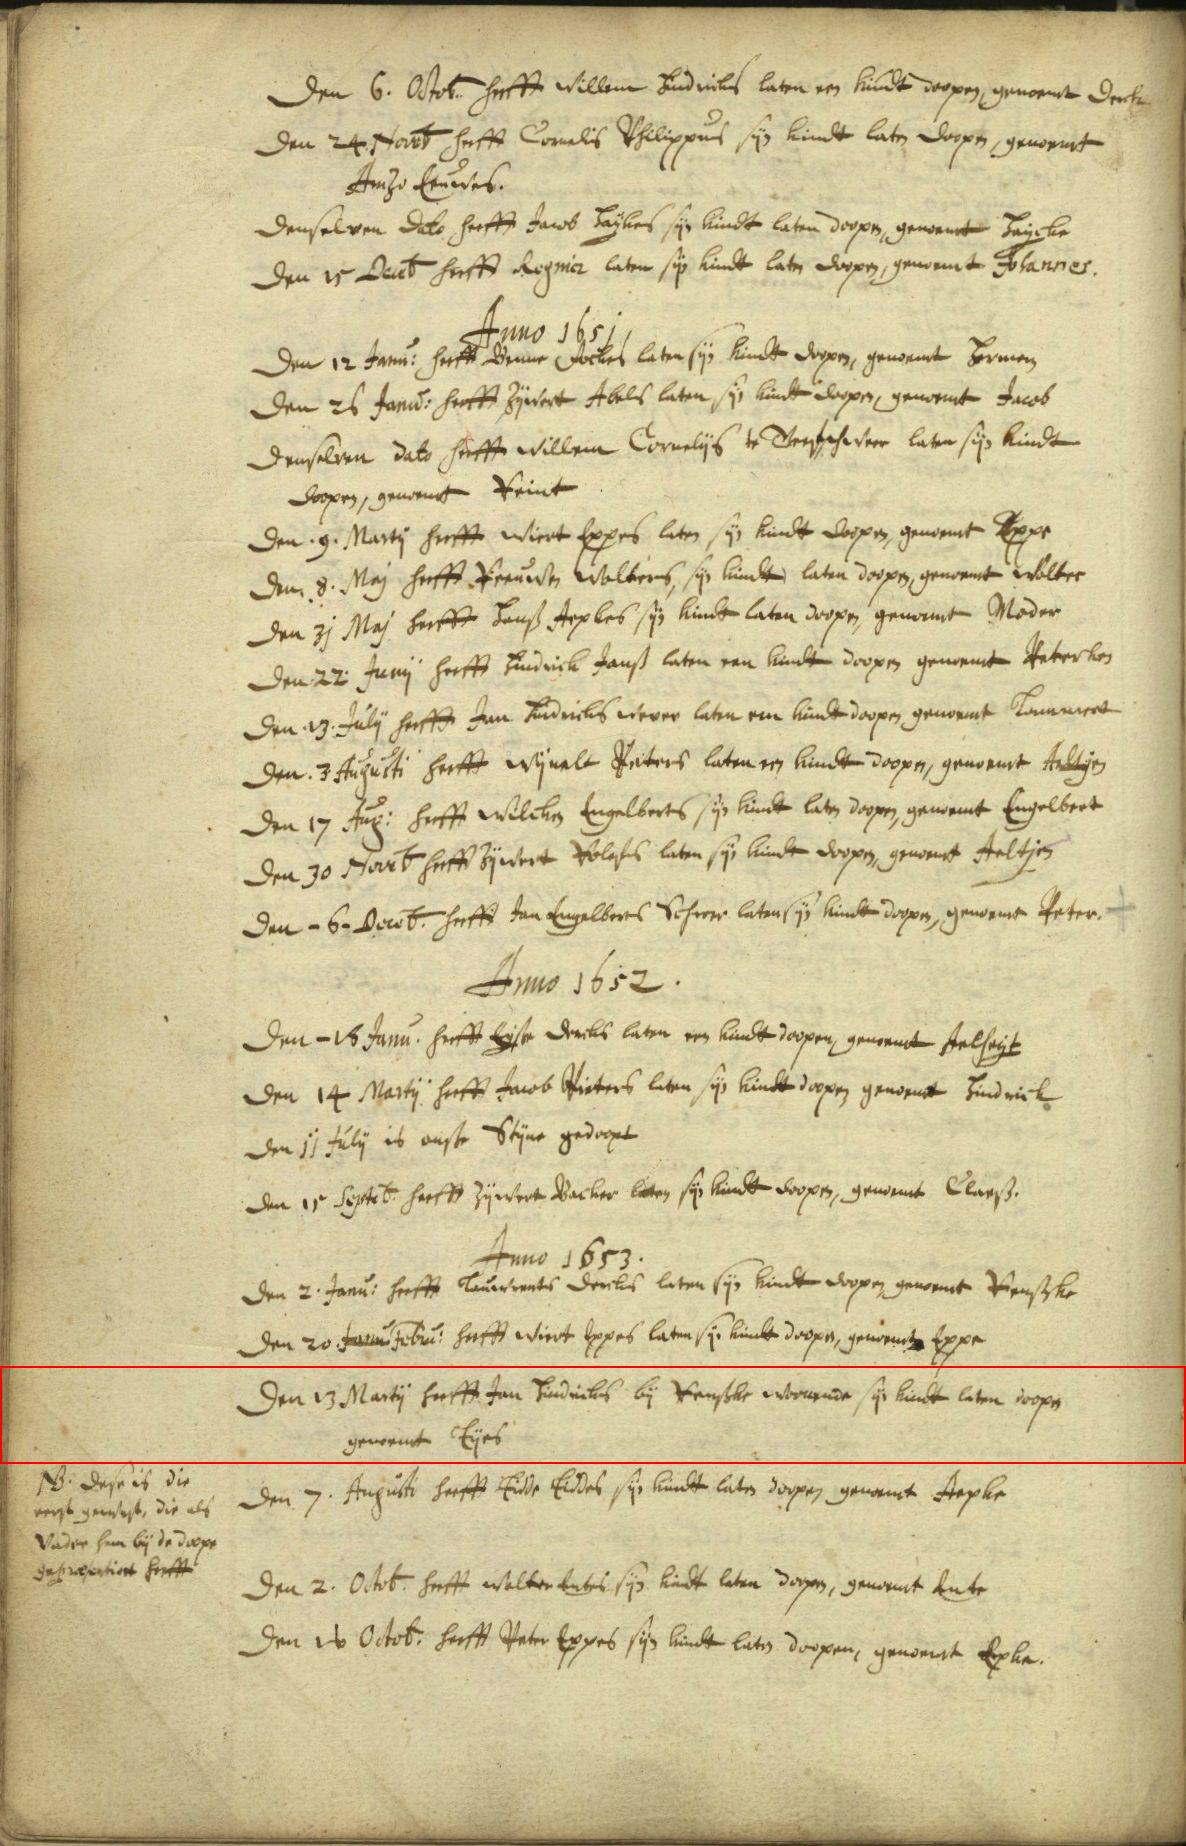 Den 6. Octob. hefft Willem Hindricks laten een kindt doopen, genoemt Derck
Den 24 Novēb hefft Cornelis Philippus sijn kindt laten doopen, genoemt
Amzo Eeuwes.
Denselven dato hefft Jacob Haykes sijn kindt laten doopen, genoemt Haycke
Den 15 Decēb hefft laten sijn kindt laten doopen, genoemt Johannes.
Anno 1651
Den 12 Janu: hefft Benne Fockes laten sijn kindt doopen, genoemt Hermen
Den 26 Janu: hefft Zijwert Abels laten sijn kindt doopen, genoemt Jacob
Denselven dato hefft Willem Cornelijs te laten sijn kindt
doopen, genoemt Reint
Den .9. Martij hefft Wiert Eppes laten sijn kindt doopen, genoemt Eppe
Den .8. Maj hefft Wolters, sijn kindt laten doopen, genoemt Wolter
Den 3j Maj hefft Hanß Aepkes sijn kindt laten doopen, genoemt Moder
Den 22 Junij hefft Hindrick Janß laten een kindt doopen genoemt Peterken
Den .13. Julij hefft Jan Hindricks wever laten een kindt doopen genoemt Lammert
Den .3 Augusti hefft Wijnelt Peters laten een kindt doopen, genoemt Aeltjen
Den 17 Aug: hefft Wilcken Engelberts sijn kindt laten doopen, genoemt Engelbert
Den 30 Novēb hefft Zijwert Rolefs laten sijn kindt doopen, genoemt Aeltjen
Den - 6 - Decēb. hefft Jan Engelberts Schroer laten sijn kindt doopen, genoemt Peter.
Anno 1652.
Den - 18 Janu. hefft Eijse Dercks laten een kindt doopen, genoemt
Den 14 Martij hefft Jacob Pieters laten sijn kindt doopen genoemt Hindrick
Den 11 Julij is onse Stijne gedoopt
Den 15 Septēb. hefft Zijwert Backer laten sijn kindt doopen, genoemt Claesß.
Anno 1653.
Den 2. Janu: hefft Lauwrents Dercks laten sijn kindt doopen genoemt Renßke
Den 20. Janu Febru: hefft Wiert Eppes laten sijn kindt doopen, genoemt Eppe
Den 13 Martij hefft Jan Hindricks bij Renßke woonende sijn kindt laten doopen
genoemt Eijes
NB: dese is die
eerst geweest, die als
Vader hem bij de doope
gepraesentiert hefft
Den 7. Augusti hefft Eidde Eiddes sijn kindt laten doopen genoemt Aepke
Den 2. Octob. hefft Wolter Entes sijn kindt laten doopen, genoemt Ente
Den 16 Octob. hefft Peter Eppes sijn kindt laten doopen, genoemt Epke.